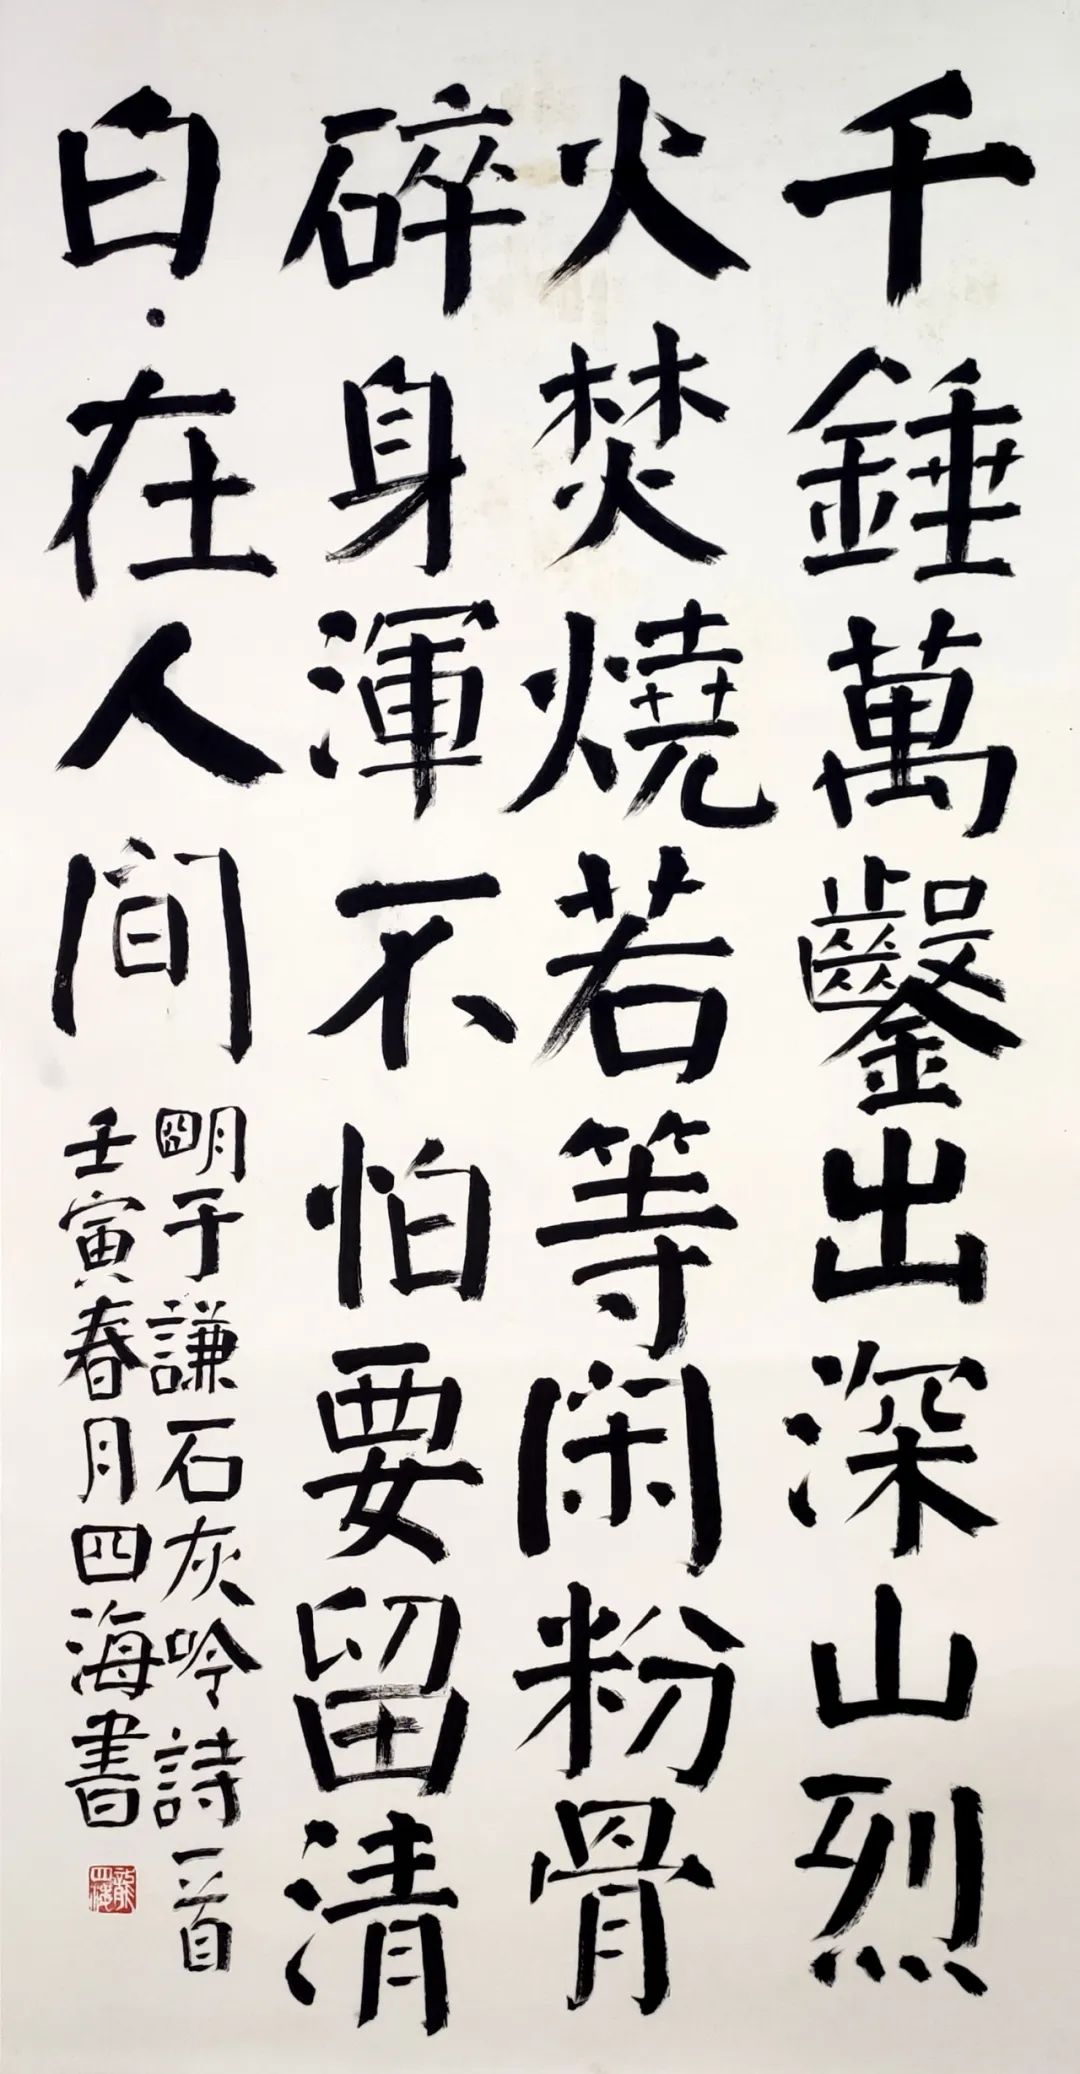 千錘萬鑿出深山烈
火焚燒若等闲粉骨
碎身渾不怕要留清
白·在人间
朙于謙石灰吟詩一首
壬寅春月四海書
龍四海